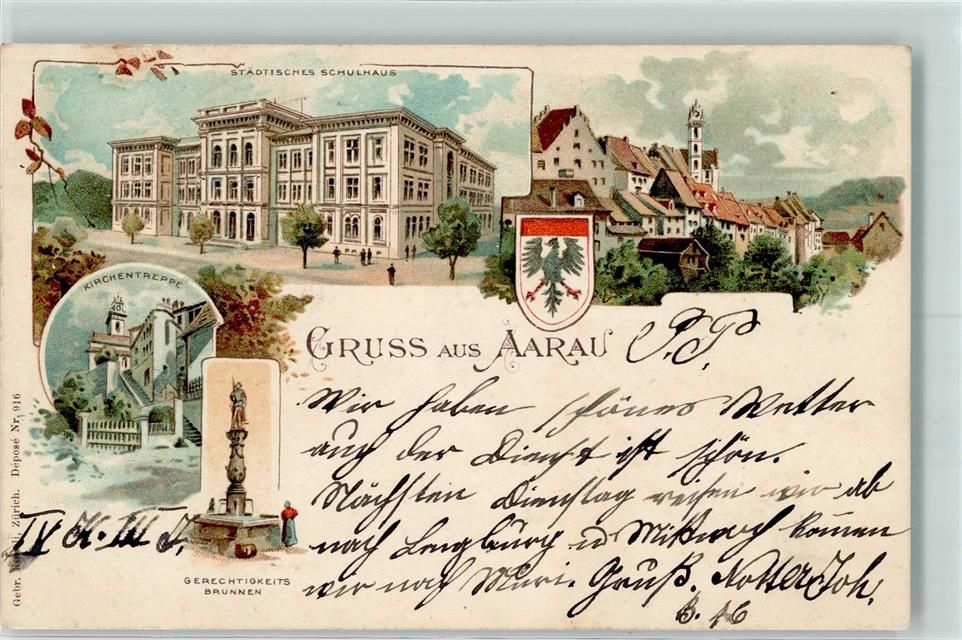 STÄDTISCHES SCHULHAUS
KIRCHENTREPPE
GRUSS AUS AARAU
P.P.
Wir haben schönes Wetter
auch der Dienst ist schön.
Nächsten Dienstag reisen wir ab
nach Lengburg u Mittwoch kommen
wir nach Muri. Gruß. Notter Joh.
B. 46
IV K. III
GERECHTIGKEITS
BRUNNEN
Gebr. Zürich. Déposé Nr. 916